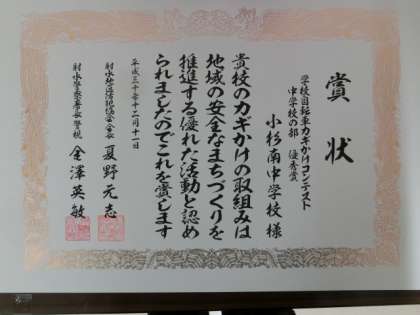 賞状
学校自転車カギかけコンテスト
中学校の部 優秀賞
小杉南中学校 様
貴校のカギかけの取組みは
地域の安全なまちづくりを
推進する優れた活動と認め
られましたのでこれを賞します
平成三十年十二月十一日
射水地区防犯協会会長 夏野元志
射水警察署長警視 金澤英敏